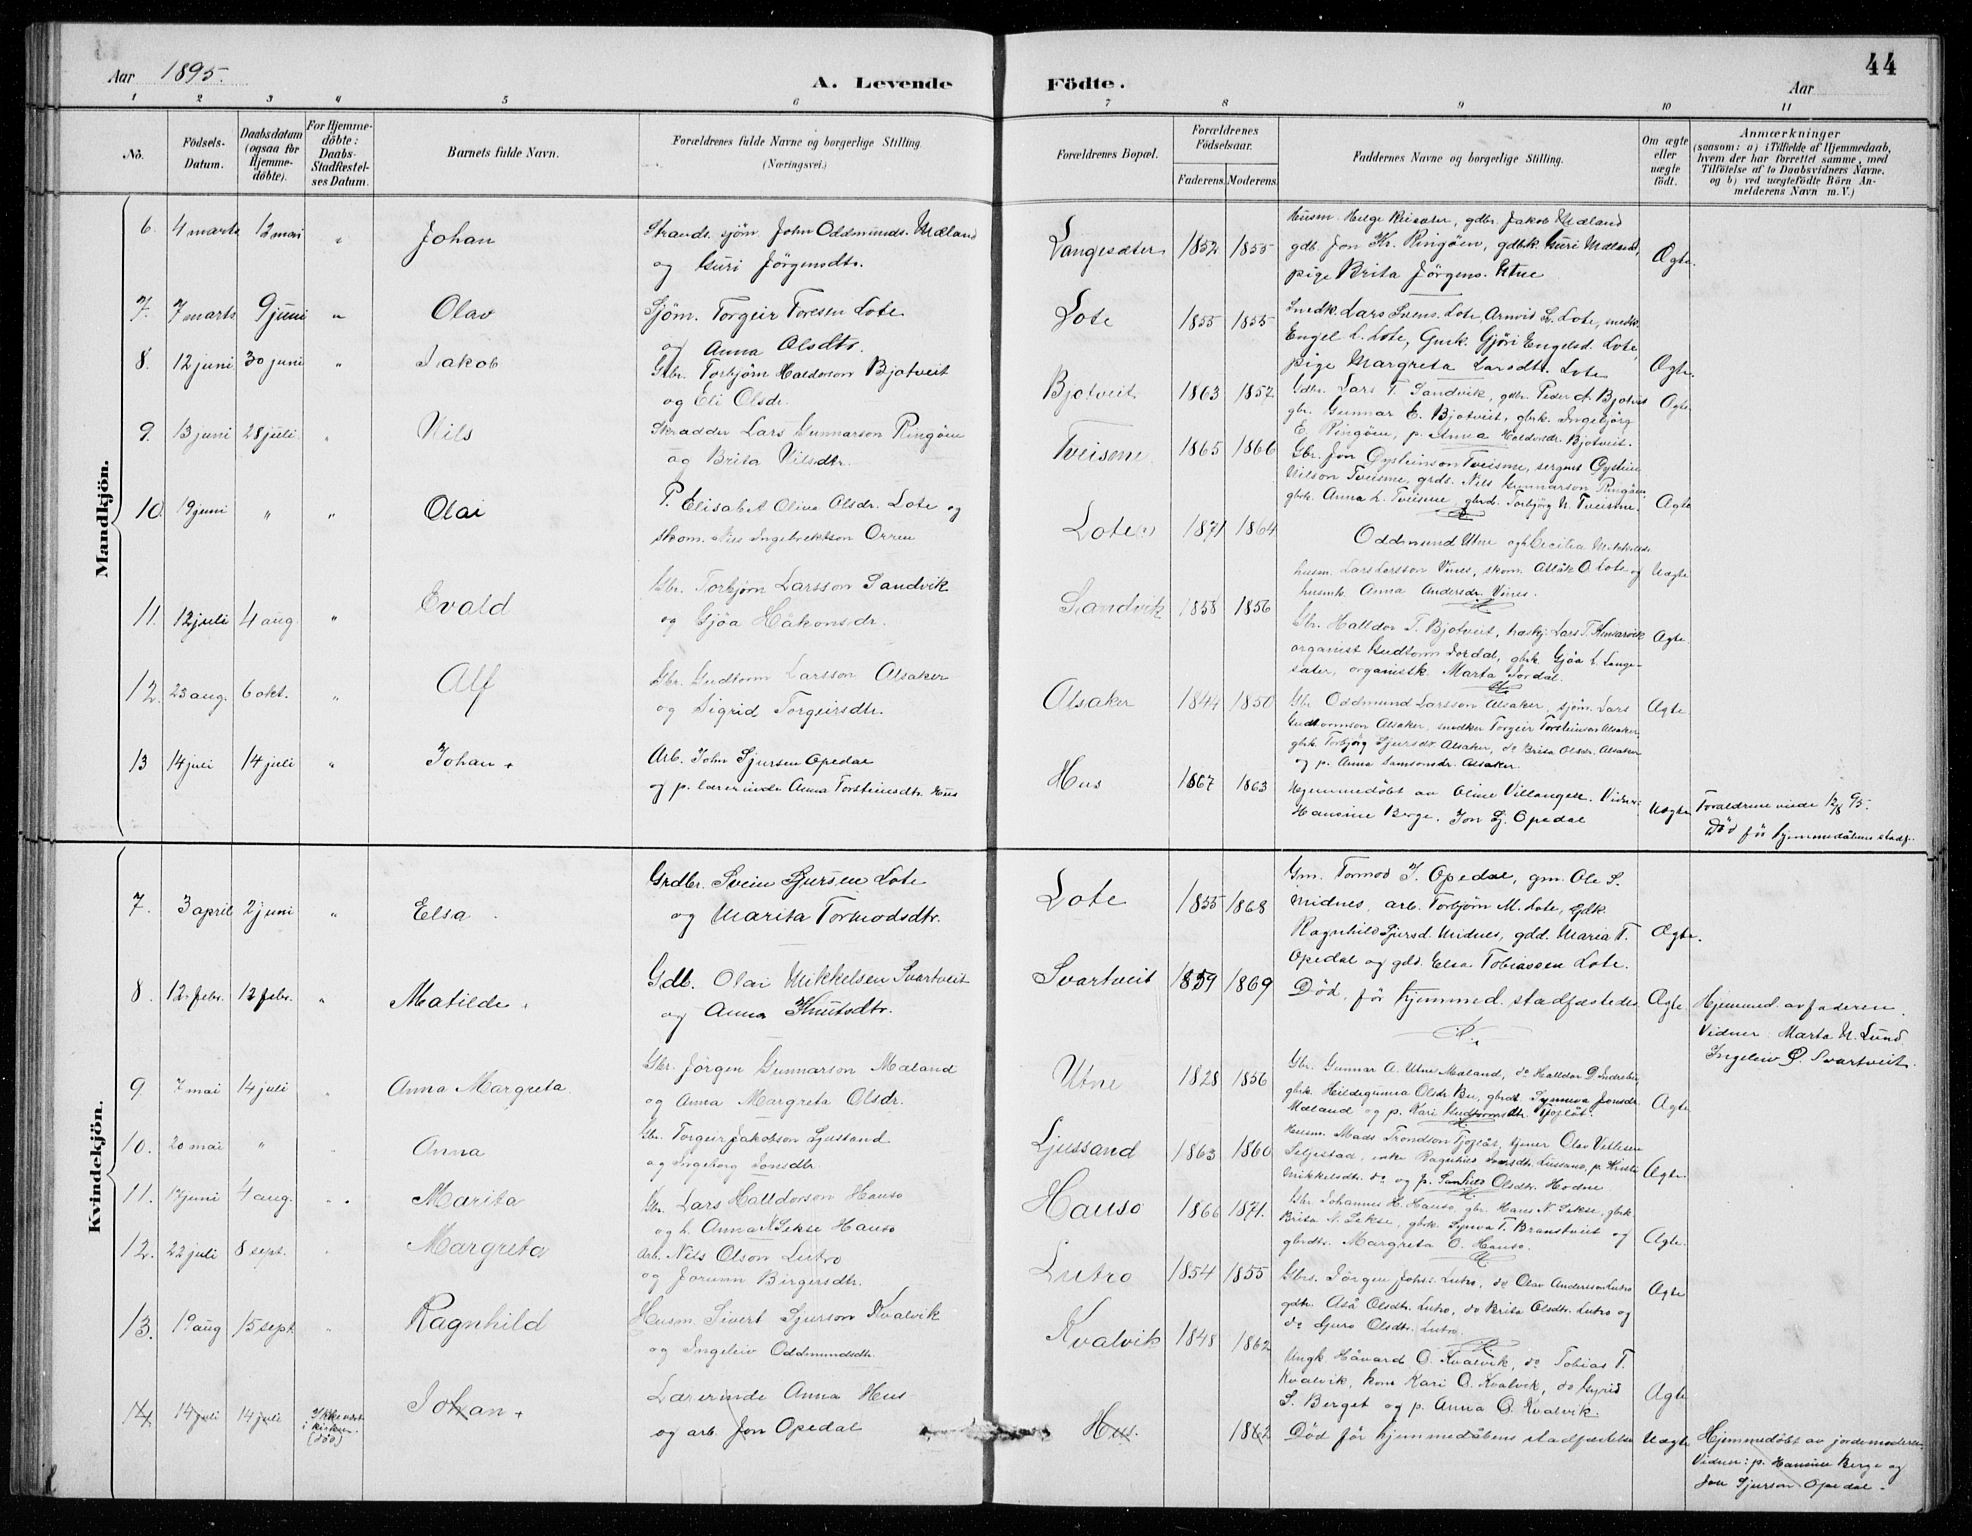 44
Aar 1895.
A. Levende Födte.
Aar
1 2 3 4 5 6 7 8 9 10 11
No.
Födsels-Datum.
Daabsdatum (ogsaa for Hjemme-döbte).
For Hjemme-döbte: Daabs-Stadfæstel-ses Datum.
Barnets fulde Navn.
Forældrenes fulde Navne og borgerlige Stilling.
(Næringsvei.)
Forældrenes Bopæl.
Forældrenes Födselsaar.
Faderens. Moderens.
Faddernes Navne og borgerlige Stilling.
Om ægte eller uægte födt.
Anmærkninger
(saasom: a) i Tilfælde af Hjemmedaab, hvem der har forrettet samme, med Tilföielse af to Daabsvidners Navne, og b) ved uægtefödte Börn An-melderens Navn m. V.)
Mandkjön.
6. 4 marts 12 mai " Johan
Strands. sjöm. John Oddmunds. Mæland
og Guri Jörgensdtr.
Langesæter 1852 1855
Husm. Helge Reisæter, gdbr. Jakob Mæland
gdb. Jon Kr. Ringöen, gdbk. Guri Mæland,
pige Brita Jörgens. Utne
Ægte.
7. 7 marts 9 juni " Olav
Sjöm. Torgeir Toresen Lote
og Anna Olsdtr.
Lote 1855 1855
Snedk. Lars Svens. Lote, Arnvis L. Lote, snedk.
Engel L. Lote, Gmk. Gjöri Engelsd. Lote,
pige Margreta Larsdtr. Lote
Ægte.
8. 12 juni 30 juni " Jakob
Gbr. Torbjörn Haldorson Bjotveit
og Eli Olsdr.
Bjotveit 1863 1857
Gdbr. Lars T. Sandvik, gdbr. Peder A. Bjotveit
gbr. Gunnar E. Bjotveit, gbrk. Ingebjörg
E. Ringöen, p. Anna Haldorsdr. Bjotveit.
Ægte
9. 13 juni 28 juli " Nils
Skrædder Lars Gunnarson Ringöen
og Brita Nilsdtr.
Tveisme 1865 1866
Gbr. Jon Oysteinson Tveisme, sergent Oystein
Nilson Tveisme, grds. Nils Gunnarson Ringöen
gbrk. Anna L. Tveisme, gbrd. Torbjörg N. Tveisme.
Ægte
10. 19 juni " " Olai
P. Elisabet Oliva Olsdr. Lote og
skom. Nils Ingebrektson Orren
Lote 1871 1864
Oddmund Utne og Cecilia
husm. Lars Larsson Vines, skom. Aslak O. Lote og
husmk. Anna Andersdr. Vines.
Uægte
11. 12 juli 4 aug. " Evald
Gbr. Torbjörn Larsson Sandvik
og Gjöa Håkonsdr.
Sandvik 1858 1856
Gbr. Halldor T. Bjotveit, Lars T. Kinsarvik
organist Gudtorm Jordal, gbrk. Gjöa L. Lange-
sæter, organistk. Marta Jordal.
Ægte
12. 23 aug. 6 okt. " Alf
Gbr. Gudtorm Larsson Alsaker
og Sigrid Torgeirsdtr.
Alsaker 1844 1850
Gbr. Oddmund Larsson Alsaker, sjöm. Lars
Gudtormson Alsaker, snedker Torgeir Torsteinson Alsaker
gbrk. Torbjörg Sjursdr. Alsaker, do Brita Olsdr. Alsaker
og p. Anna Samsonsdr. Alsaker.
Ægte
13 14 juli 14 juli " Johan +
Arb. John Sjursen Opedal
og p. lærerinde Anna Torsteinsdtr. Hus
Hus 1867 1863
Hjemmedöbt av Oline Villanger. Vidner:
Hansine Berge, Jon Sj. Opedal
Uægte
Forældrene viede 12/8 95.
Död för hjemmedåbens stadf.
Kvindekjön.
7. 3 april 2 juni " Elsa
Grdbr. Svein Sjursen Lote
og Marita Tormodsdtr.
Lote 1855 1868
Gm. Tormod J. Opedal, gm. Ole S.
Midnes, arb. Torbjörn M. Lote, Gdk.
Ragnhild Sjursd. Midnes, gdd. Maria T.
Opedal og gds. Elsa Tobiassen Lote.
Ægte.
8. 12. febr. 12 febr. " Matilde
Gdb. Olai Mikkelsen Svartveit
og Anna Knutsdtr.
Svartveit 1859 1869
Död, för hjemmed. stadfæstedes
Ægte
Hjemmed. av faderen.
Vidner: Marta N. Lund
Ingeleiv O. Svartveit.
9. 7 mai 14 juli " Anna Margreta
Gbr. Jörgen Gunnarson Mæland
og Anna Margreta Olsdr.
Utne 1828 1856
Gbr. Gunnar A. Utne Mæland, do Halldor D. Indrebö,
gbrk. Hildegunna Olsdr. Bu, gbrdt. Synneva Jonsdr.
Mæland og p. Kari Gudtormsdtr. Tjoflåt.
Ægte
10. 20 mai " " Anna
Gbr. Torgeir Jakobson Ljussand
og Ingeborg Jonsdtr.
Ljussand 1863 1860
Husm. Mads Trondson Tjoflåt, tjener Olav Vetlesen
Seljestad, enke Ragnhild Jonsdtr. Lussand, p. Kristi
Mikkelsdtr. do og p. Sanhild Olsdtr. Hodne
Ægte
11. 17 juni 4 aug. " Marita
Gbr. Lars Halldorson Hauso
og h. Anna N. Sekse Hauso
Hauso 1866 1871.
Gbr. Johannes H. Hauso, gbr. Hans N. Sekse, gbrk.
Brita N. Sekse, gbrk. Synva T. Branstveit og
gbrdtr. Margreta O. Hauso.
Ægte.
12. 22 juli 8 sept. " Margreta
Arb. Nils Olson Lutro
og Jorunn Birgersdtr.
Lutro 1854 1855
Gbrs. Jörgen Johs. Lutro, do Olav Anderson Lutro
gdtr. Aså Olsdtr. Lutro, do Brita Olsdtr. Lutro og
do Guro Olsdtr. Lutro
Ægte
13. 1 aug 15 sept. " Ragnhild
Husm. Sivert Sjurson Kvalvik
og Ingeleiv Oddmundsdtr.
Kvalvik 1848 1862
Ungk. Håvard O. Kvalvik, do Tobias T.
Kvalvik, kone Kari O. Kvalvik, do Gyrid
S. Berget og p. Anna O. Kvalvik.
Ægte
14 14 juli 14 juli Ikke været i kirken (död) Johan +
Lærerinde Anna Hus
og arb. Jon Opedal
Hus. 1862
Död för hjemmedåbens stadfæstelse
Uægte
Hjemmedöbt av jordemoderen
Vidner: p. Hansine Berge og
Jon Sjurson Opedal.